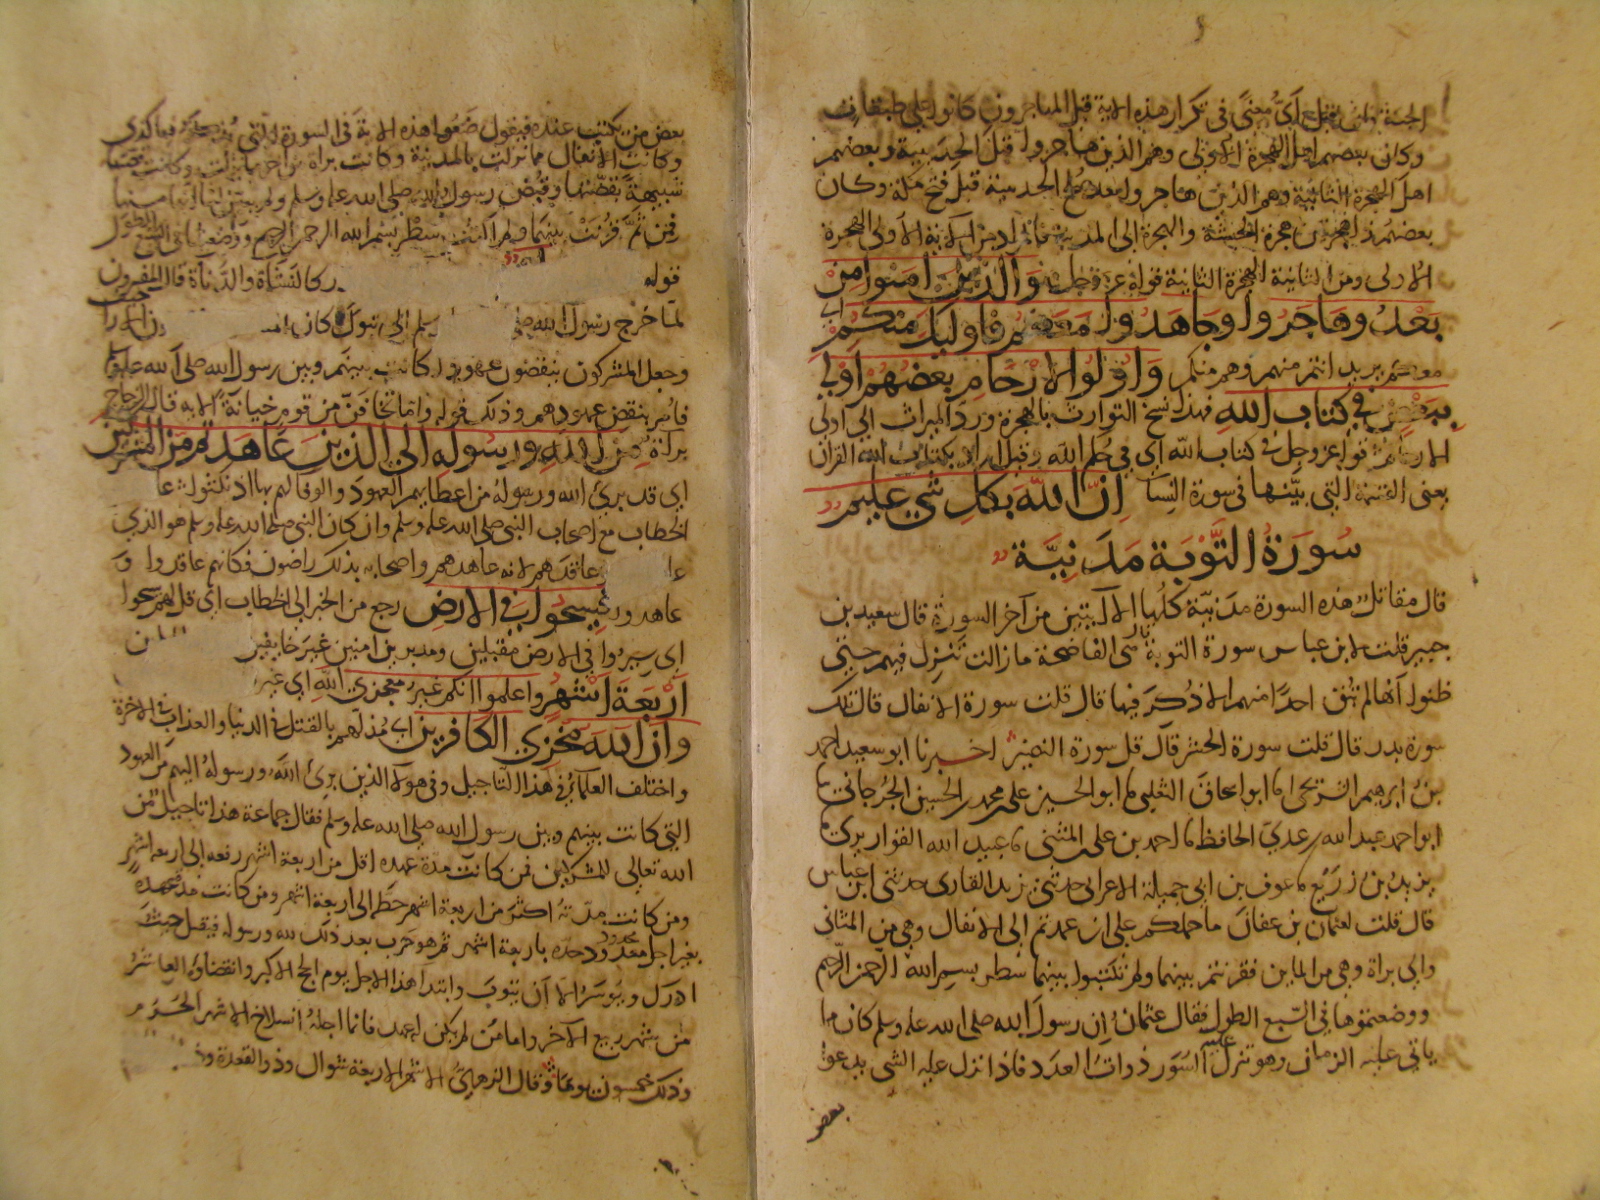 الجنة فان قيل اي معنى في تكرار هذه الاية قيل المهاجرون كانوا على طبقات
وكان بعضهم اهل الهجرة الاولى وهم الذين هاجروا قبل الحديبية وبعضهم
اهل الهجرة الثانية وهم الذين هاجروا بعد صلح الحديبية قبل فتح مكة وكان
بعضهم ذا هجرتين هجرة الحبشة والهجرة الى المدينة فالمراد من الاية الاولى الهجرة
الاولى ومن الثانية الهجرة الثانية قوله عز وجل والذين امنوا من
بعد وهاجروا وجاهدوا معكم فاوليك منكم اي
معكم يريد انتم منهم وهم منكم واولوا الارحام بعضهم اولى
ببعض في كتاب الله فهذا نسخ التوارث بالهجرة ورد الميراث الى اولى
الارحام قوله عز وجل في كتاب الله اي في حكم الله وقيل اراد بكتاب الله القران
يعني القسمة التي بينها في سورة النسا ان الله بكل شي عليم
سورة التوبة مدنية
قال مقاتل هذه السورة مدنية كلها الا آيتين من آخر السورة قال سعيد بن
جبير قلت لابن عباس سورة التوبة قال هي الفاضحة ما زالت تنزل فيهم حتى
ظنوا انها لم تبق احدا منهم الا ذكر فيها قال قلت سورة الانفال قال تلك
سورة بدر قال قلت سورة الحشر قال قل سورة النضير اخبرنا ابو سعيد احمد
بن ابرهيم الشريحي انا ابو اسحاق الثعلبي انا ابو الحسين علي بن محمد بن الحسين الجرجاني انا
ابو احمد عبد الله بن عدي الحافظ انا احمد بن علي بن المثنى نا عبيد الله القواريري نا
يزيد بن زريع نا عوف بن ابي جميلة الاعرابي حدثني يزيد القاري حدثني ابن عباس
قال قلت لعثمان بن عفان ما حملكم على ان عمدتم الى الانفال وهي من المثاني
والى براة وهي من الماين فقرنتم بينهما ولم تكتبوا بينهما سطر بسم الله الرحمن الرحيم
ووضعتموها في السبع الطول فقال عثمان ان رسول الله صلى الله عليه وسلم كان ما
ياتي عليه الزمان وهو تنزل عليه السور ذوات العدد فاذا انزل عليه الشي يدعوا
بعض
بعض من يكتب عنده فيقول ضعوا هذه الاية في السورة التي يذكر فيها كذا
وكانت الانفال مما نزلت بالمدينة وكانت براة من آخر ما نزلت وكانت قصتها
شبيهة بقصتها وقبض رسول الله صلى الله عليه وسلم ولم يبين لنا انها منها
فمن ثم قرنت بينهما ولم اكتب سطر بسم الله الرحمن الرحيم ووضعتها في السبع الطول
قوله كالنشاة والدناة قال المفسرون
لما خرج رسول الله صلى سلم الى تبوك كان
وجعل المشركون ينقضون عهودا كانت بينهم وبين رسول الله صلى الله عليه
فامر بنقض عهودهم وذلك قوله واما تخافن من قوم خيانة الاية قال الزجاج
براة من الله ورسوله الى الذين عاهدتم من المشركين
اي قد برئ الله ورسوله من اعطايهم العهود والوفا لهم بها اذ نكثوا
الخطاب مع اصحاب النبي صلى الله عليه وسلم وان كان النبي صلى الله عليه وسلم هو الذي
عاقدهم لانه عاهدهم واصحابه بذلك راضون فكانهم عاقدوا و
عاهدوا فسيحوا في الارض رجع من الخبر الى الخطاب اي قل لهم سيحوا
اي سيروا في الارض مقبلين ومدبرين امنين غير خايفين
اربعة اشهر واعلموا انكم غير معجزي الله اي غير
وان الله مخزي الكافرين اي مذلهم بالقتل في الدنيا والعذاب في الاخرة
واختلف العلما في هذا التاجيل وفي هولا الذين برئ الله ورسوله اليهم من العهود
التي كانت بينهم وبين رسول الله صلى الله عليه وسلم فقال جماعة هذا تاجيل من
الله تعالى للمشركين فمن كانت مدة عهده اقل من اربعة اشهر رفعه الى اربعة اشهر
ومن كانت مدته اكثر من اربعة اشهر حطه الى اربعة اشهر ومن كانت مدة عهده
بغير اجل محدود حده باربعة اشهر ثم هو حرب بعد ذلك لله ورسوله فيقتل حيث
ادرك ويوسر الا ان يتوب وابتدا هذا الاجل يوم الحج الاكبر وانقضاؤه العاشر
من شهر ربيع الآخر واما من لم يكن له عهد فانما اجله انسلاخ الاشهر الحرم
وذلك خمسون يوما وقال الزهري الاشهر الاربعة شوال وذو القعدة